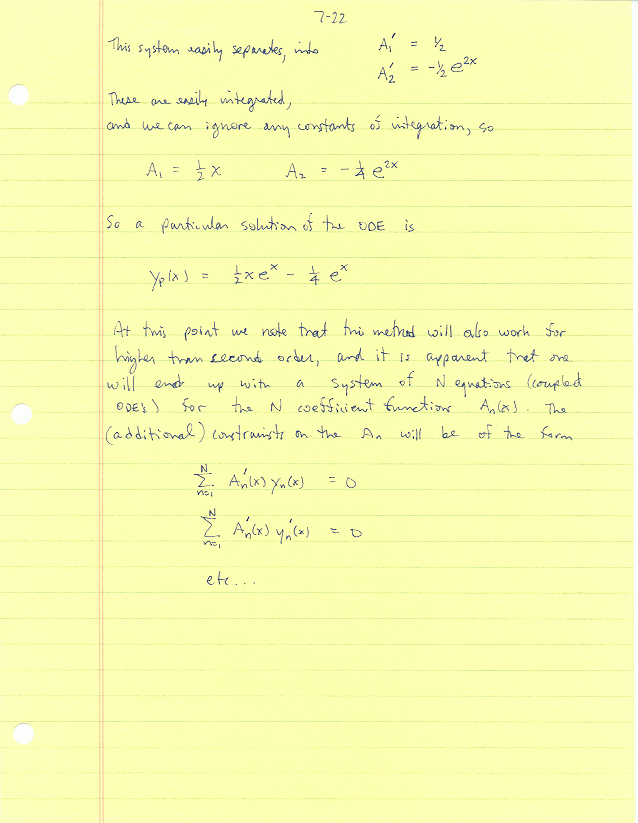 7-22
This system easily separates, into A₁′ = ½
A₂′ = -½ e²ˣ
These are easily integrated,
and we can ignore any constants of integration, so
A₁ = ½ x A₂ = - ¼ e²ˣ
So a particular solution of the ODE is
yₚ(x) = ½ x eˣ - ¼ eˣ
At this point we note that this method will also work for
higher than second order, and it is apparent that one
will end up with a system of N equations (coupled
ODE's) for the N coefficient functions Aₙ(x). The
(additional) constraints on the Aₙ will be of the form
∑ₙ₌₁ᴺ Aₙ′(x) yₙ(x) = 0
∑ₙ₌₁ᴺ Aₙ′(x) yₙ′(x) = 0
etc...